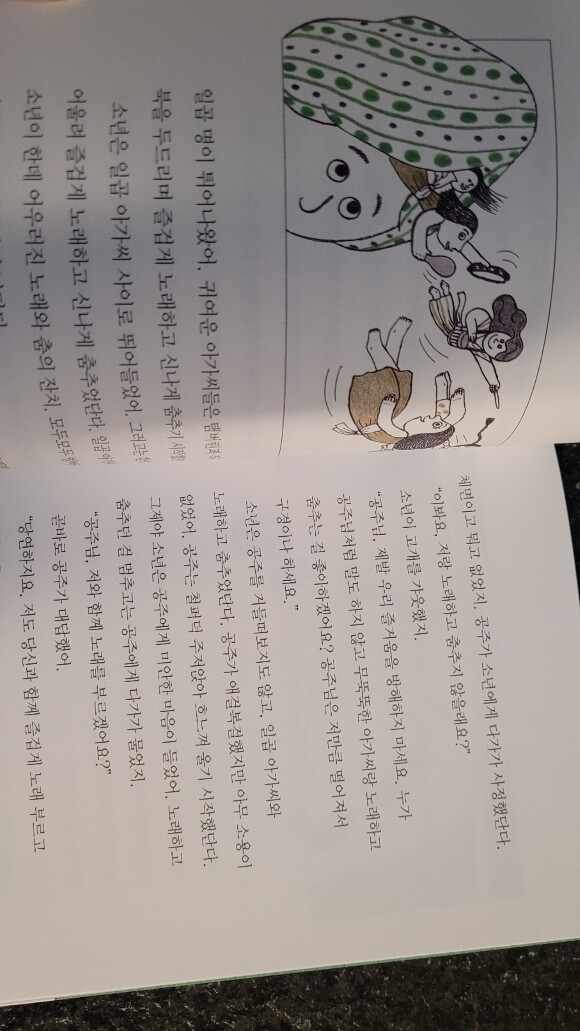 일곱 명이 튀어나왔어. 귀여운 아가씨들은 탬버린과
북을 두드리며 즐겁게 노래하고 신나게 춤추기 시작
소년은 일곱 아가씨 사이로 뛰어들었어. 그리고는
어울려 즐겁게 노래하고 신나게 춤추었단다. 일곱
소년이 한데 어우러진 노래와 춤의 잔치. 모두모두
체면이고 뭐고 없었지. 공주가 소년에게 다가가 사정했단다.
"이봐요, 저랑 노래하고 춤추지 않을래요?"
소년이 고개를 갸웃했지.
"공주님, 제발 우리 즐거움을 방해하지 마세요. 누가
공주님처럼 말도 하지 않고 무뚝뚝한 아가씨랑 노래하고
춤추는 걸 좋아하겠어요? 공주님은 저만큼 떨어져서
구경이나 하세요."
소년은 공주를 거들떠보지도 않고, 일곱 아가씨와
노래하고 춤추었단다. 공주가 애걸복걸했지만 아무 소용이
없었어. 공주는 철퍼덕 주저앉아 흐느껴 울기 시작했단다.
그제야 소년은 공주에게 미안한 마음이 들었어. 노래하고
춤추던 걸 멈추고는 공주에게 다가가 물었지.
"공주님, 저와 함께 노래를 부르겠어요?"
곧바로 공주가 대답했어.
"당연하지요. 저도 당신과 함께 즐겁게 노래 부르고